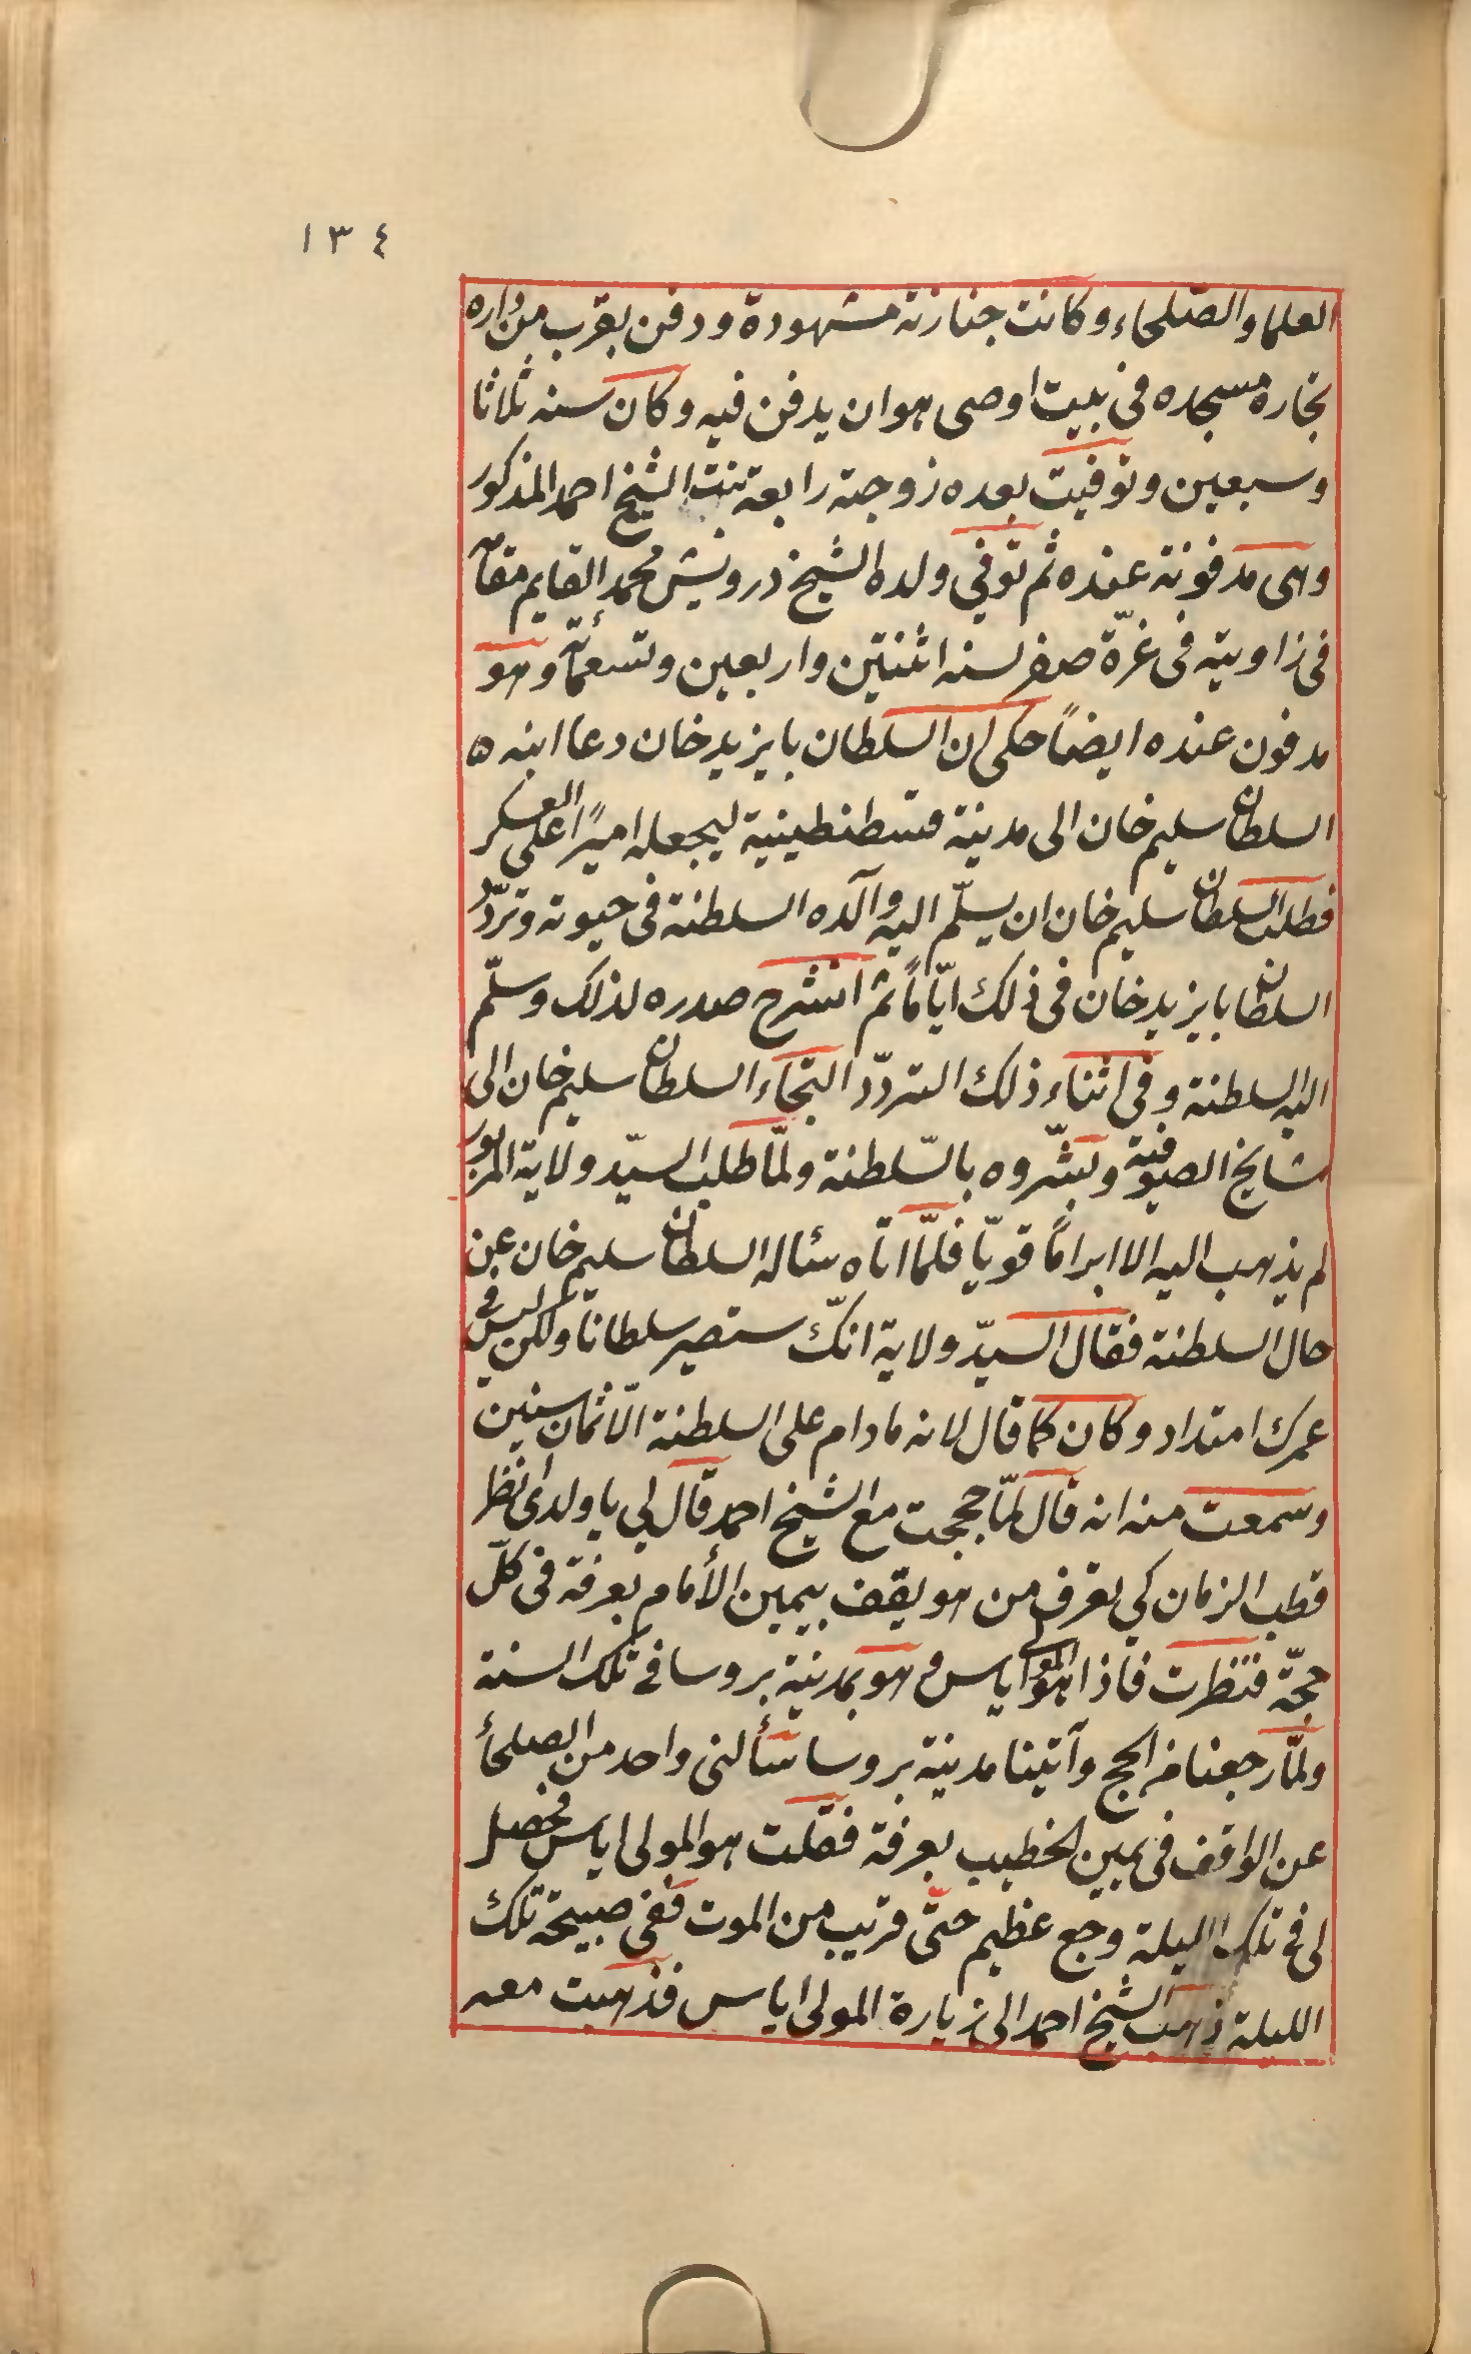 ١٣٤
العلما والصّلحاء وكانت جنازته مشهودة ودفن بقرب من داره
بخاره مسجده فى بيت اوصى هوان يدفن فيه وكان سنه ثلاثا
وسبعين وتوفيت بعده زوجته رابعة بنت الشيخ احمد المذكور
وهى مدفونة عنده ثم توّفي ولده الشيخ درويش محمد القايم مقامه
فى زاويته فى غرّة صفر لسنه اثنتين واربعين وتسعمأة وهو
مدفون عنده ايضاً حكى ان السلطان بايزيد خان دعا ابنه ه
السلطان سليم خان الى مدينة قسطنطينية ليجعله اميرًا على العسكر
فطلب السلطان سليم خان ان يسلّم اليه والده السلطنة فى حيوته وتردّد
السلطان بايزيد خان فى ذلك ايّاماً ثم انشرح صدره لذلك وسلّم
اليه السلطنة وفى اثناء ذلك التردّد التجاء السلطان سليم خان الى
مشايخ الصوفية وبشّروه بالسّلطنة ولمّا طلب السيّد ولاية المزبور
لم يذهب اليه الا ابراماً قويّا فلمّا اتاه سئاله السلطان سليم خان عن
حال السلطنة فقال السيّد ولاية انكّ ستصير سلطانا ولكن ليس فى
عمرك امتداد وكان كما قال لانه مادام على السلطنة الّا ثمان سنين
وسمعت منه انه قال لمّا حججت مع الشيخ احمد قال لي يا ولدى انظر
قطب الزمان كي تعرف من هو يقف بيمين الأمام بعرفة فى كلّ
حجّة فنظرت فاذا هو المولى اياس وهو بمدينة بروسا فى تلك السنة
ولمّا رجعنا من الحج وآتينا مدينة بروسا سألنى واحد من الصلحأ
عن الواقف فى يمين الخطيب بعرفة فقلت هو المولى اياس فحصل
لى فى تلك الليلة وجع عظيم حتّى قريب من الموت ففى صبيحة تلك
الليلة ذهب الشيخ احمد الى زيارة المولى اياس فذهبت معه